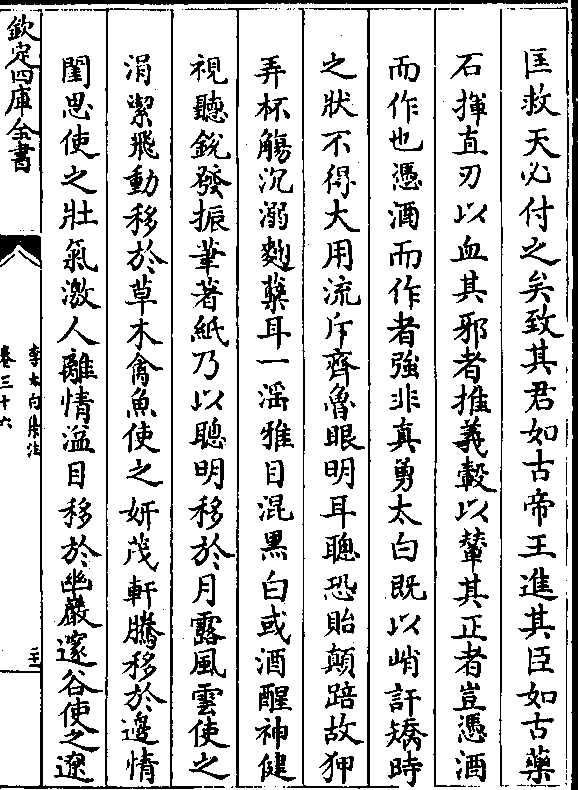 匡救天必付之矣致其君如古帝王進其臣如古藥
石揮直刃以血其邪者推義轂以輦其正者豈憑酒
而作也憑酒而作者強非真勇太白既以峭訐矯時
之狀不得大用流斥齊魯眼明耳聰恐貽顛踣故狎
弄杯觴沉溺麴糵耳一淫雅目混黑白或酒醒神健
視聽銳發振筆著紙乃以聰明移於月露風雲使之
涓潔飛動移於草木禽魚使之妍茂軒騰移於邊情
閨思使之壯氣激人離情溢目移於幽巖邃谷使之遼
欽定四庫全書
李太白集注
卷三十六
二十一